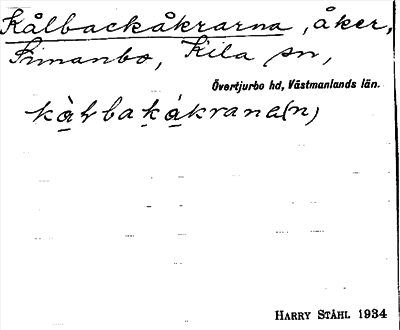 Kålbackåkrarna, åker,
Simanbo, Kila sn,
Övertjurbo hd, Västmanlands län.
kȧ̀ƚbakȧ́krana(n)
HARRY STÅHL 1934